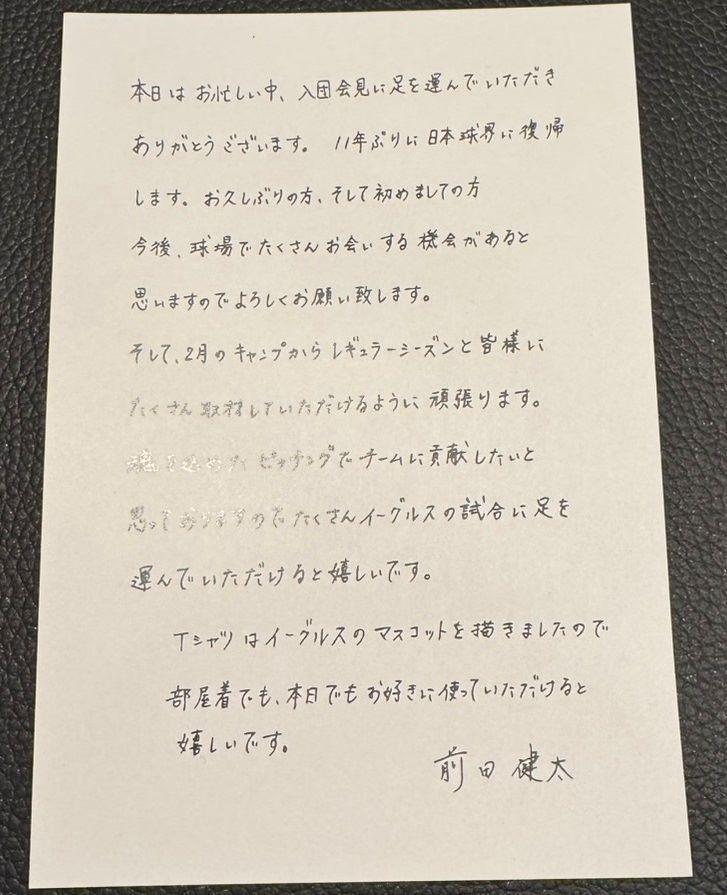 本日は お忙しい中、入団会見に足を運んでいただき
ありがとうございます。 11年ぶりに日本球界に復帰
します。お久しぶりの方、そして初めましての方
今後、球場でたくさんお会いする機会があると
思いますのでよろしくお願い致します。
そして、2月のキャンプからレギュラーシーズンと皆様に
たくさん取材していただけるように頑張ります。
魂を込めたピッチングでチームに貢献したいと
思っておりますのでたくさんイーグルスの試合に足を
運んでいただけると嬉しいです。
Tシャツはイーグルスのマスコットを描きましたので
部屋着でも、本日でもお好きに使っていただけると
嬉しいです。
前田健太